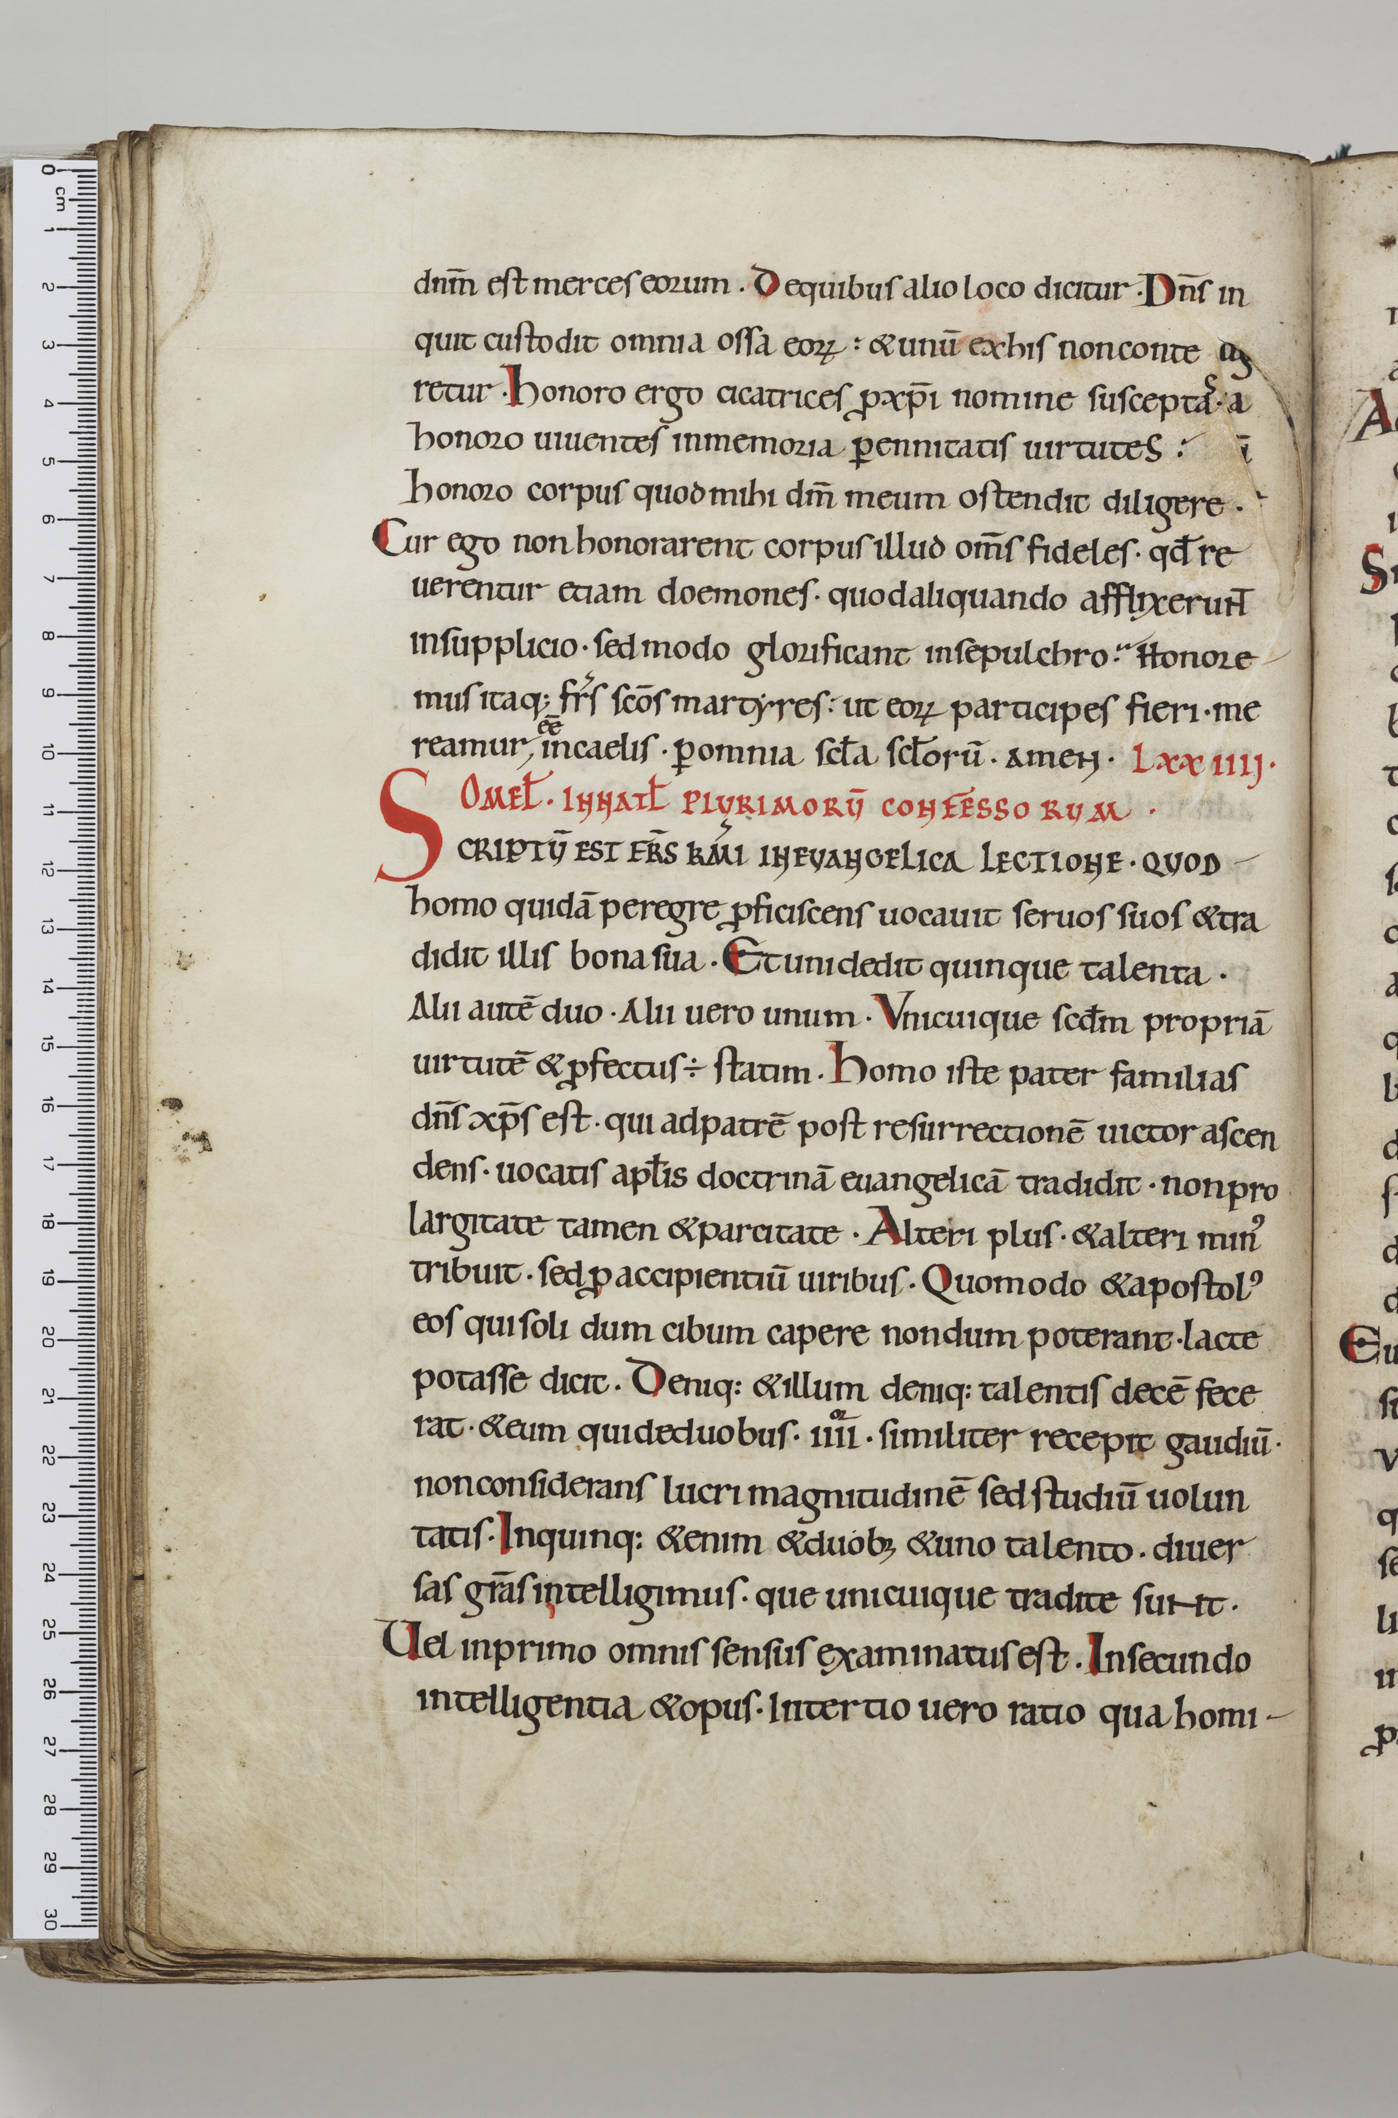 dnm̄ est merces eorum . De quibus alio loco dicitur . Dn̄s in
quit custodit omnia ossa eoꝝ : & unū ex his non conte
retur . Honoro ergo cicatrices ꝓ xp̄i nomine suscepta .
honoro uiuentes in memoria ꝑennitatis uirtutes :
honoro corpus quod mihi dm̄ meum ostendit diligere .
Cur ego non honorarent corpus illud om̄s fideles . qđ re
uerentur etiam doemones . quod aliquando afflixerunt
in supplicio . sed modo glorificant in sepulchro . Honore
mus itaq; fr̄s sc̄os martyres : ut eoꝝ participes fieri . me
reamur, ēē in caelis . ꝑ omnia sc̄la sc̄lorū . amen . LXXIIIIJ .
OMEL̄ . IN NAT̄L PLVRIMORV̄ CONFESSORVM .
SCRIPTV̄ EST FR̄S KM̄I IN EVANGELICA LECTIONE . QVOD
homo quidā peregre ꝓficiscens uocauit seruos suos & tra
didit illis bona sua . Et uni dedit quinque talenta .
Alii autē duo . Alii uero unum . Vnicuique scd̄m propriā
uirtutē & ꝓfectus ÷ statim . Homo iste pater familias
dn̄s xp̄s est . qui ad patrē post resurrectionē uictor ascen
dens . uocatis apl̄is doctrinā euangelicā tradidit . non pro
largitate tamen & parcitate . Alteri plus . & alteri minꝰ
tribuit . sed ꝓ accipientiū uiribus . Quomodo & apostolꝰ
eos qui soli dum cibum capere nondum poterant . lacte
potasse dicit . Deniq: & illum deniq: talentis decē fece
rat . & eum qui de duobus . iiii . similiter recepit gaudiū .
non considerans lucri magnitudinē sed studiū uolun
tatis . In quinq: & enim & duobꝫ & uno talento . diuer
sas gr̄as intelligimus . que unicuique tradite sunt .
Uel in primo omnis sensus examinatus est . In secundo
intelligentia & opus . In tertio uero ratio qua homi